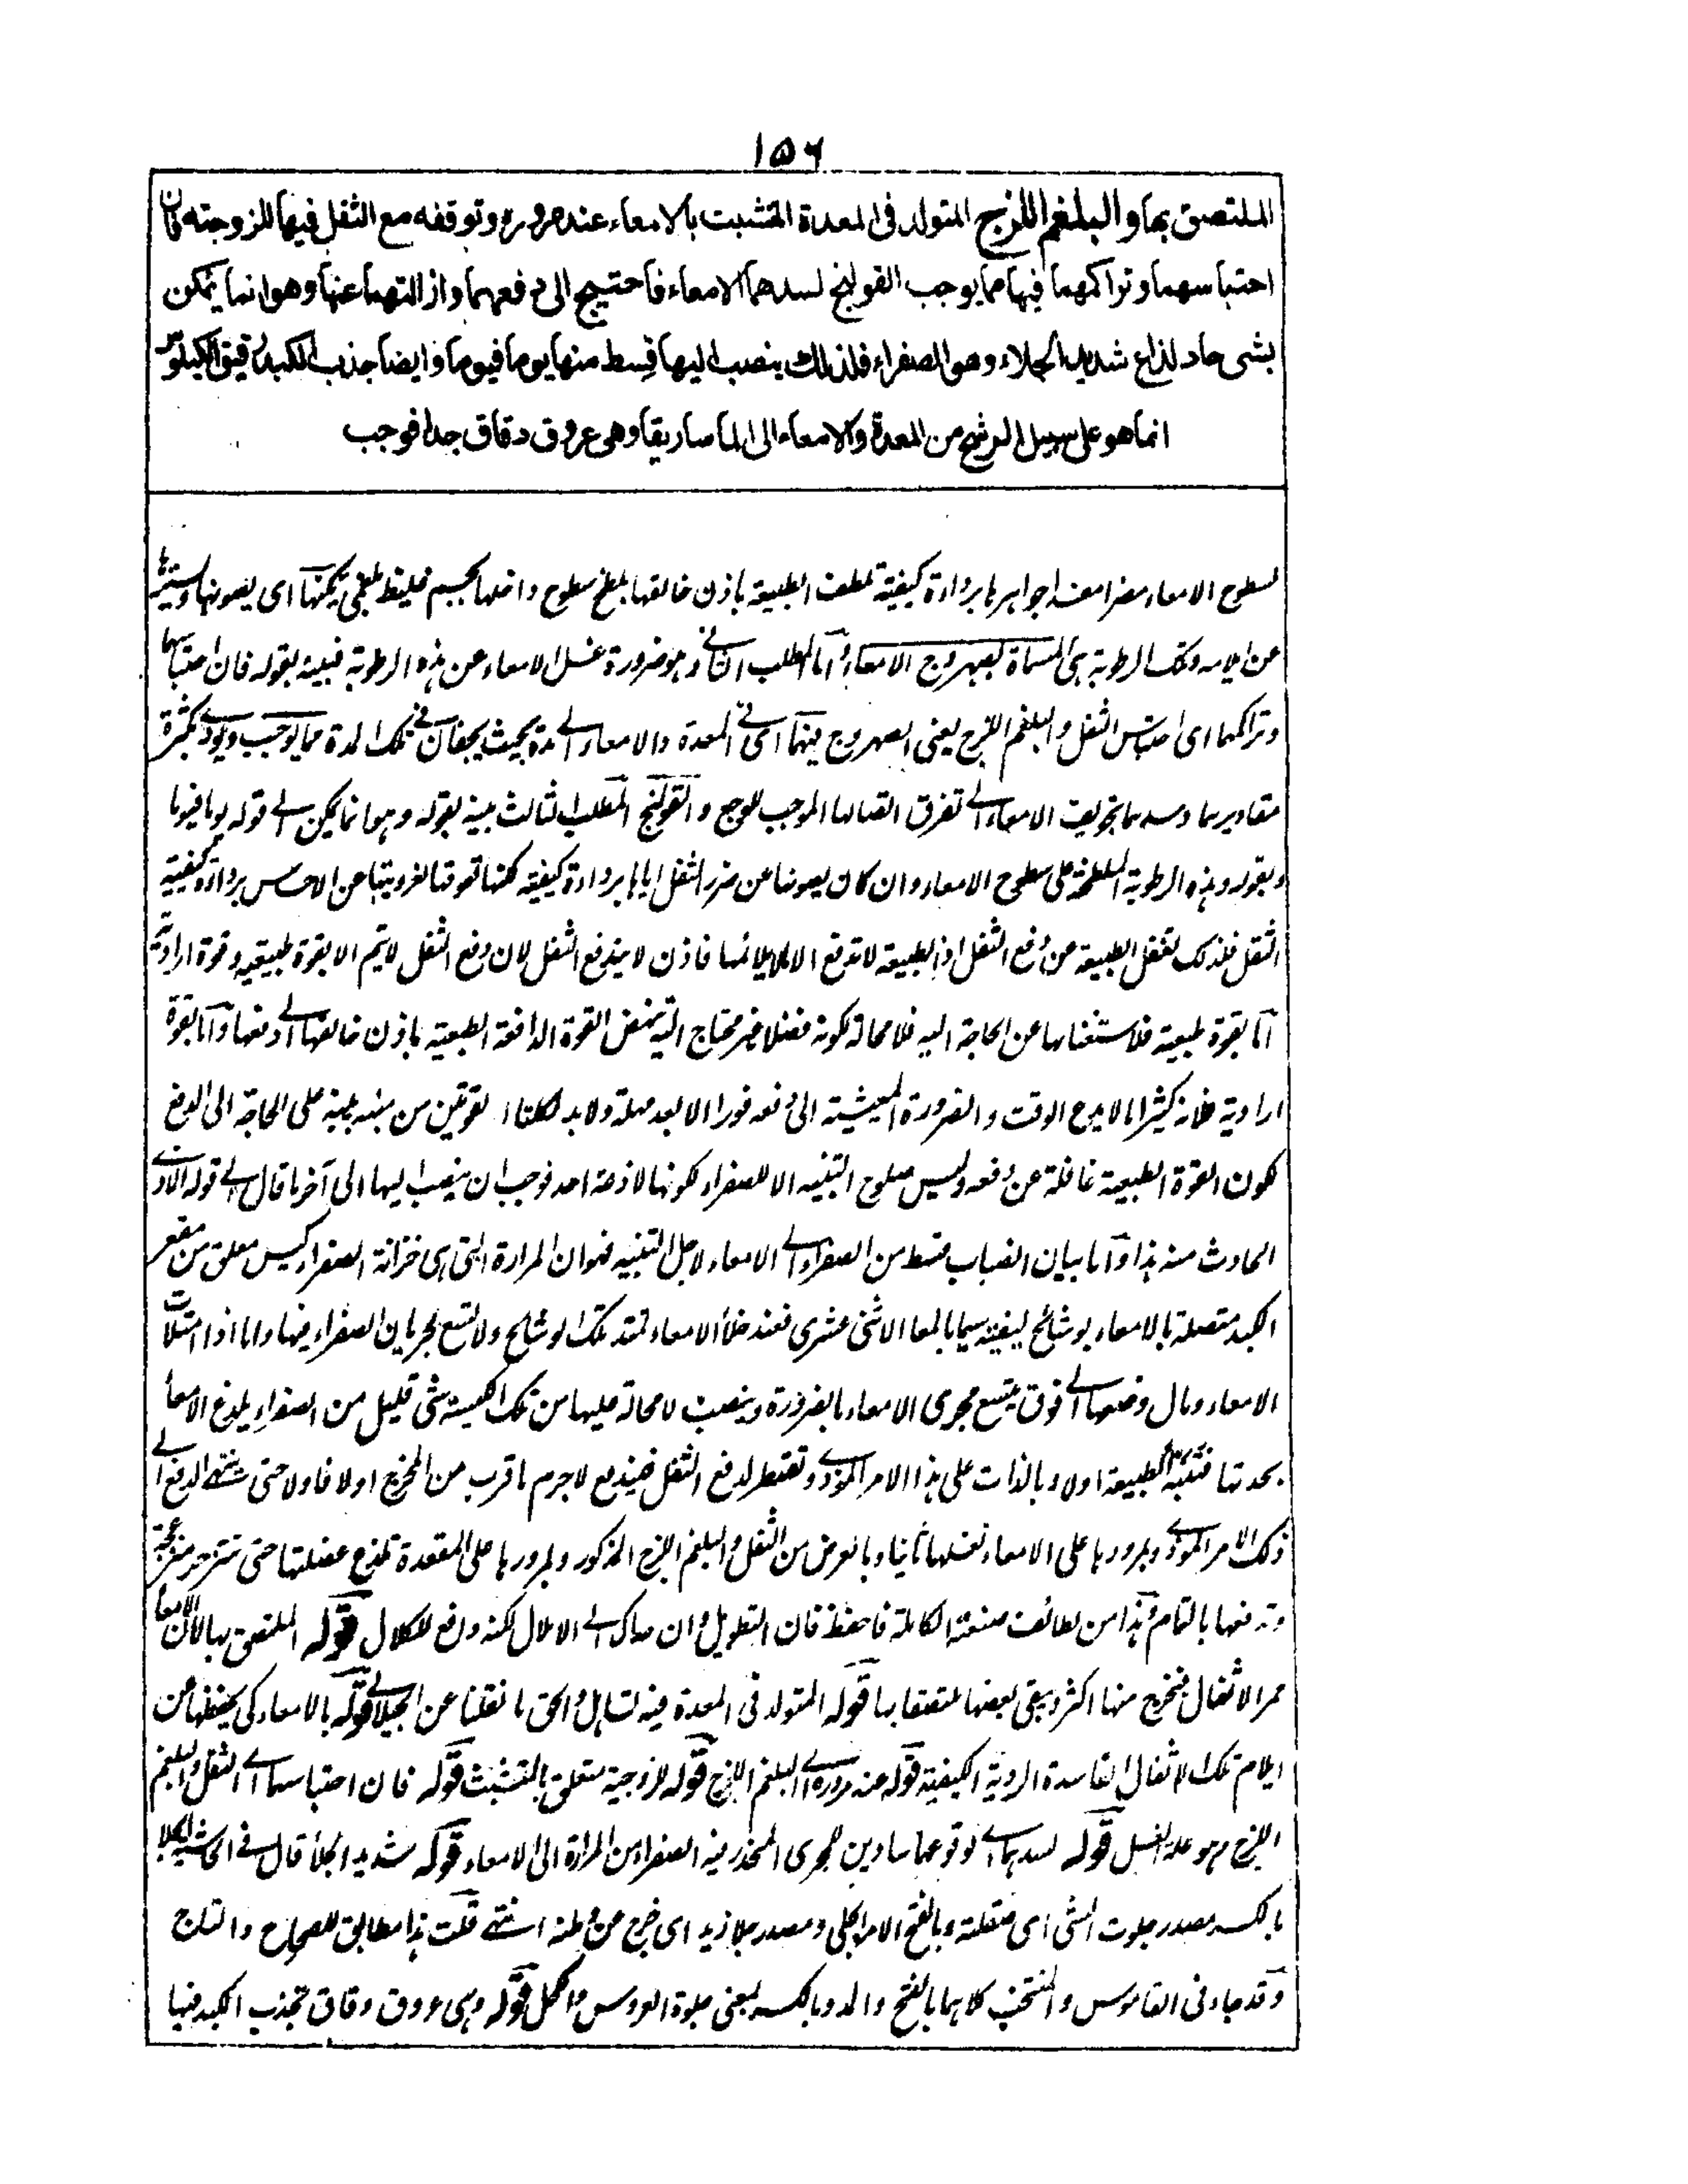 ١٥٦
الملتصق بها والبلغم اللزج المتولد فى المعدة المتشبث بالامعاء عند مروره وتوقفه مع الثفل فيها للزوجته فان
احتباسهما وتراكمهما فيها مما يوجب القولنج لسدهما الامعاء فاحتيج الى دفعهما وازالتهما عنها وهو انما يمكن
بشى حاد لذاع شديد الجلاء وهو الصفراء فلذلك ينصب اليها قسط منها يوما فيوما وايضا جذب الكبد رقيق الكيلوس
انما هو على سبيل الرشح من المعدة والامعاء الى الماساريقا وهى عروق دقاق جدا فوجب
لسطوح الامعاء مضرا مفسدا جواهرها برداءة كيفيته لطف الطبيعة باذن خالقها بلطخ سطوح داخلها بجسم غليظ بلغمى يكنها اى يصونها ويسترها
عن ايلامه وتلك الرطوبة هى المسماة بصهروج الامعاء واما المطلب الثانى وهو ضرورة غسل الامعاء عن هذه الرطوبة فبينه بقوله فان احتباسهما
وتراكمهما اى احتباس الثفل والبلغم اللزج يعنى الصهروج فيهما اى فى المعدة والامعاء الى مدة بحيث يجفان فى تلك المدة مما يوجب ويؤدى بكثرة
مقاديرهما وسدهما تجويف الامعاء الى تفرق اتصالها الموجب للوجع والقولنج المطلب الثالث بينه بقوله وهو انما يمكن الى قوله يوما فيوما
وبقوله وهذه الرطوبة الملطخة على سطوح الامعاء وان كان يصونها عن ضرر الثفل اياها برداءة كيفيته لكنها تعوقها لغرويتها عن الاحساس برداءة كيفية
الثفل فلذلك تغفل الطبيعة عن دفع الثفل اذ الطبيعة لا تدفع الا ما لا يلائمها فاذن لا يندفع الثفل لان دفع الثفل لا يتم الا بقوة طبيعية وقوة ارادية
اما بقوة طبيعية فلاستغنائها عن الحاجة اليه فلا محالة لكونه فضلا غير محتاج اليه تنهض القوة الدافعة الطبيعية باذن خالقها الى دفعها واما بقوة
ارادية فلانه كثيرا ما لا يدع الوقت والضرورة المعيشية الى دفعه فورا الا بعد مهلة ولابد لكلتا القوتين من منبه ينبه على الحاجة الى الدفع
لكون القوة الطبيعية غافلة عن دفعه وليس صلوح التنبيه الا للصفراء لكونها لاذعة احد فوجب ان ينصب اليها الى آخر ما قال الى قوله الاذى
الحادث منه هذا واما بيان انصباب قسط من الصفراء الى الامعاء لاجل التنبيه فهو ان المرارة التى هى خزانة الصفراء كيس معلق من مقعر
الكبد متصلة بالامعاء بوشائج ليفية سيما بالمعا الاثنى عشرى فعند خلأ الامعاء تمتد تلك الوشائج ولا تتسع لجريان الصفراء فيها واما اذا امتلأت
الامعاء ومال وضعها الى فوق يتسع مجرى الامعاء بالضرورة وينصب لا محالة عليها من تلك الكيسة شى قليل من الصفراء يلذع الامعاء
بحدتها فتنبه الطبيعة اولا وبالذات على هذا الامر المؤذى وتضطر لدفع الثفل فيندفع لا جرم ما قرب من المخرج اولا فاولا حتى ينتهى الدفع الى
ذلك الامر المؤذى وبمرورها على الامعاء تغسلها ثانيا وبالعرض من الثفل والبلغم اللزج المذكور وبمرورها على المقعدة تلذع عضلتها حتى
وتدفعها بالتمام وهذا من لطائف صنعته الكاملة فاحفظ فان التطويل وان ساك الى الاملال لكنه دافع للكلال قوله الملتصق بها لان الامعاء
ممر الاثفال فتخرج منها اكثر ويبقى بعضها ملتصقا بها قوله المتولد فى المعدة فيه تساهل والحق ما نقلنا عن الجيلانى قوله بالامعاء كى يحفظها عن
ايلام تلك الاثفال الفاسدة الردية الكيفية قوله عند مروره اى البلغم اللزج قوله للزوجته متعلق بالمتشبث قوله فان احتباسهما اى الثفل والبلغم
اللزج وهو علة الغسل قوله لسدهما اى لوقوعهما سادين لمجرى المنحدر فيه الصفراء من المرارة الى الامعاء قوله شديد الجلأ قال فى الحاشية الجلا
بالكسر مصدر جلوت الشى اى صقلته وبالفتح الامر الجلى ومصدر جلا زيد اى خرج عن وطنه انتهى قلت هذا مطابق للصحاح والتاج
وقد جاء فى القاموس والمنتخب كلاهما بالفتح والمد وبالكسر بمعنى جلوة العروس والكحل قوله وهى عروق دقاق تجذب الكبد فيها